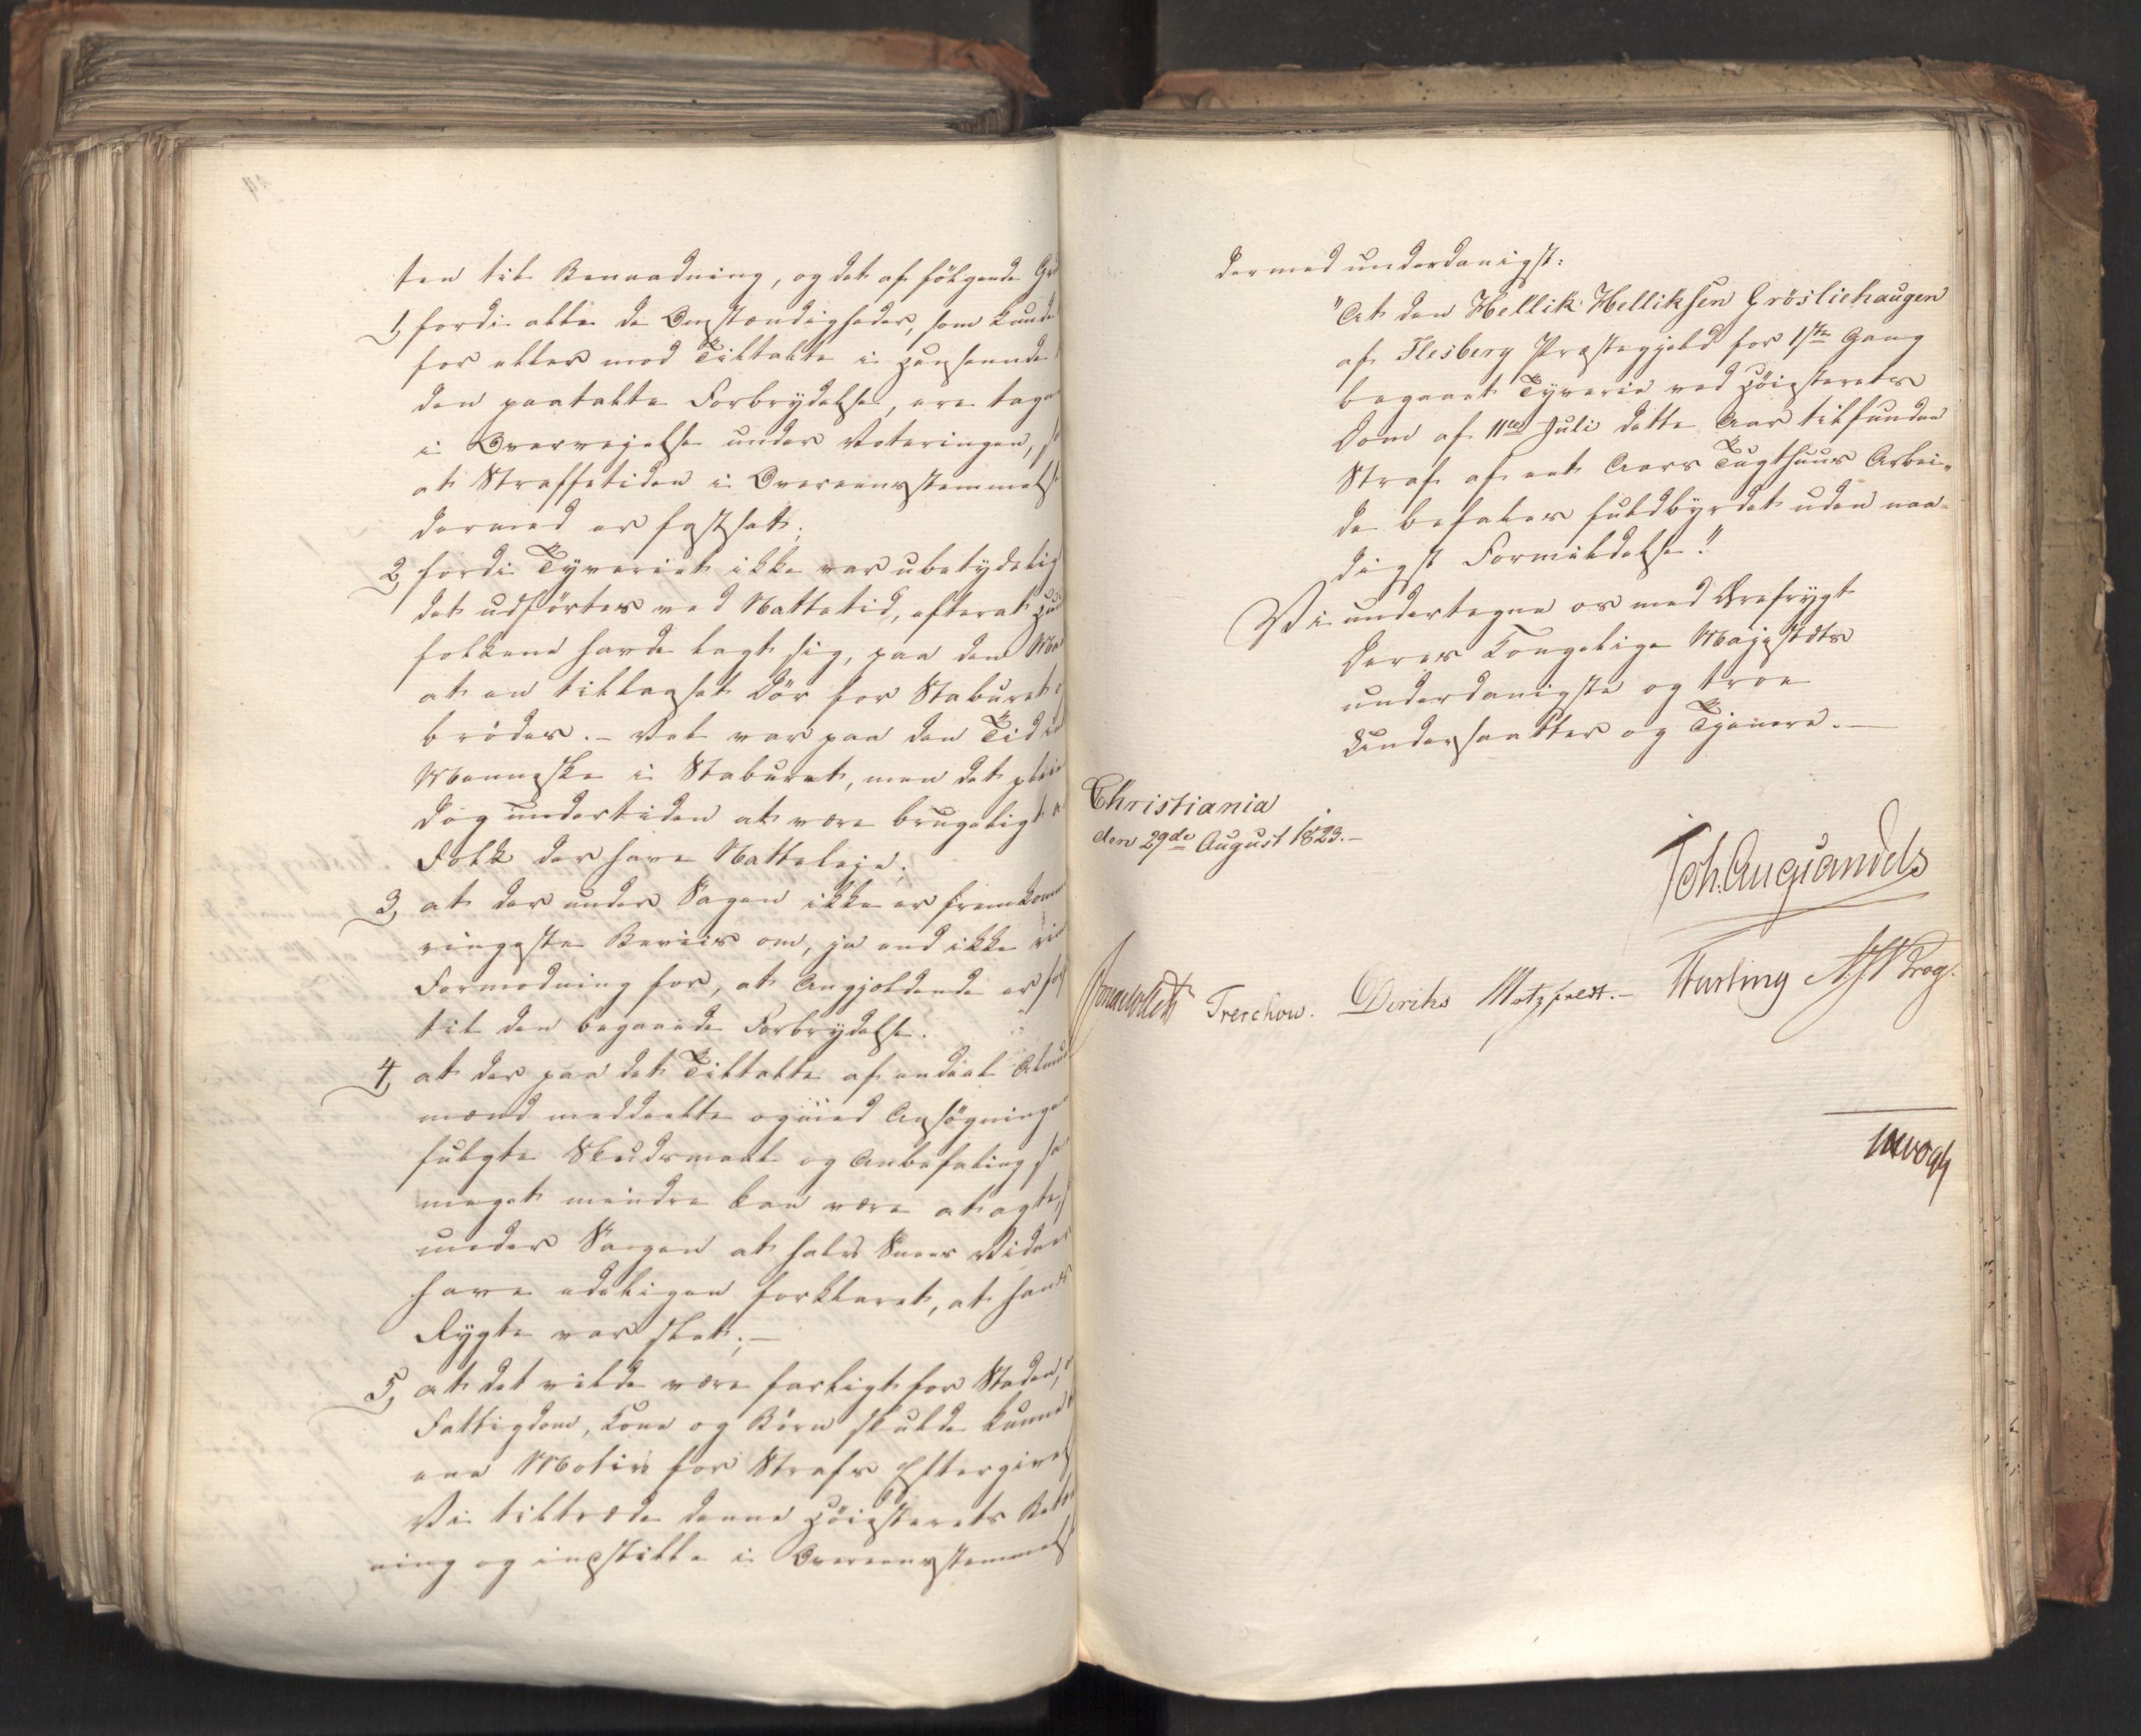 ten til Benaadning, og det af følgende
1, fordi alle de Omstændigheder, som kunde
for eller mod Tiltalte i Henseende
den paatalte Forbrydelse, ere tagne
i Overvejelse under Voteringen,
at Straffetiden i Overeensstemmelse
dermed er fastsat;
2, fordi Tyveriet ikke var ubetydelig
det udførtes ved Nattetid, efterat
folkene havde lagt sig, paa den
at en tillaaset Dør for Staburet
brødes. – Vel var paa den Tid
Menneske i Staburet, men det
dog undertiden at være brugeligt
Folk der have Natteleje;
3, at der under Sagen ikke er fremkommen
ringeste Beviis om, ja end ikke
Formodning for, at Angjeldende er
til den begaaede Forbrydelse.
4, at der paa det Tiltalte af endeel
mænd meddeelte og med Ansøgningen
fulgte Skudsmaal og Anbefaling
meget mindre kan være at agte,
under Sagen at halvt Snees Vidner
have edeligen forklaret, at hans
Rygte var slet; –
5, at det vilde være farligt for Staden,
Fattigdom, Kone og Børn skulde kunne
ene Motiv for Strafs Eftergivelse
Vi tiltræde denne Høiesterets
ning og indstille i Overeensstemmelse
dermed underdanigst:
"At den Hellik Helliksen Grösliehaugen
af Flesberg Præstegjeld for 1ste Gang
begaaet Tyverie ved Høiesterets
Dom af 11te Juli dette Aar tilfundne
Straf af eet Aars Tugthuus Arbei-
de befales fuldbyrdet uden naa-
digst Formildelse."
Vi undertegne os med Ærefrygt
Deres Kongelige Majestæts
underdanigste og troe
Undersaatter og Tjenere. –
Christiania
den 29de August 1823. –
Joh. Aug Sandels
Sommerhielm Treschow. Diriks Motzfeldt. – Fasting A. S. Krog.